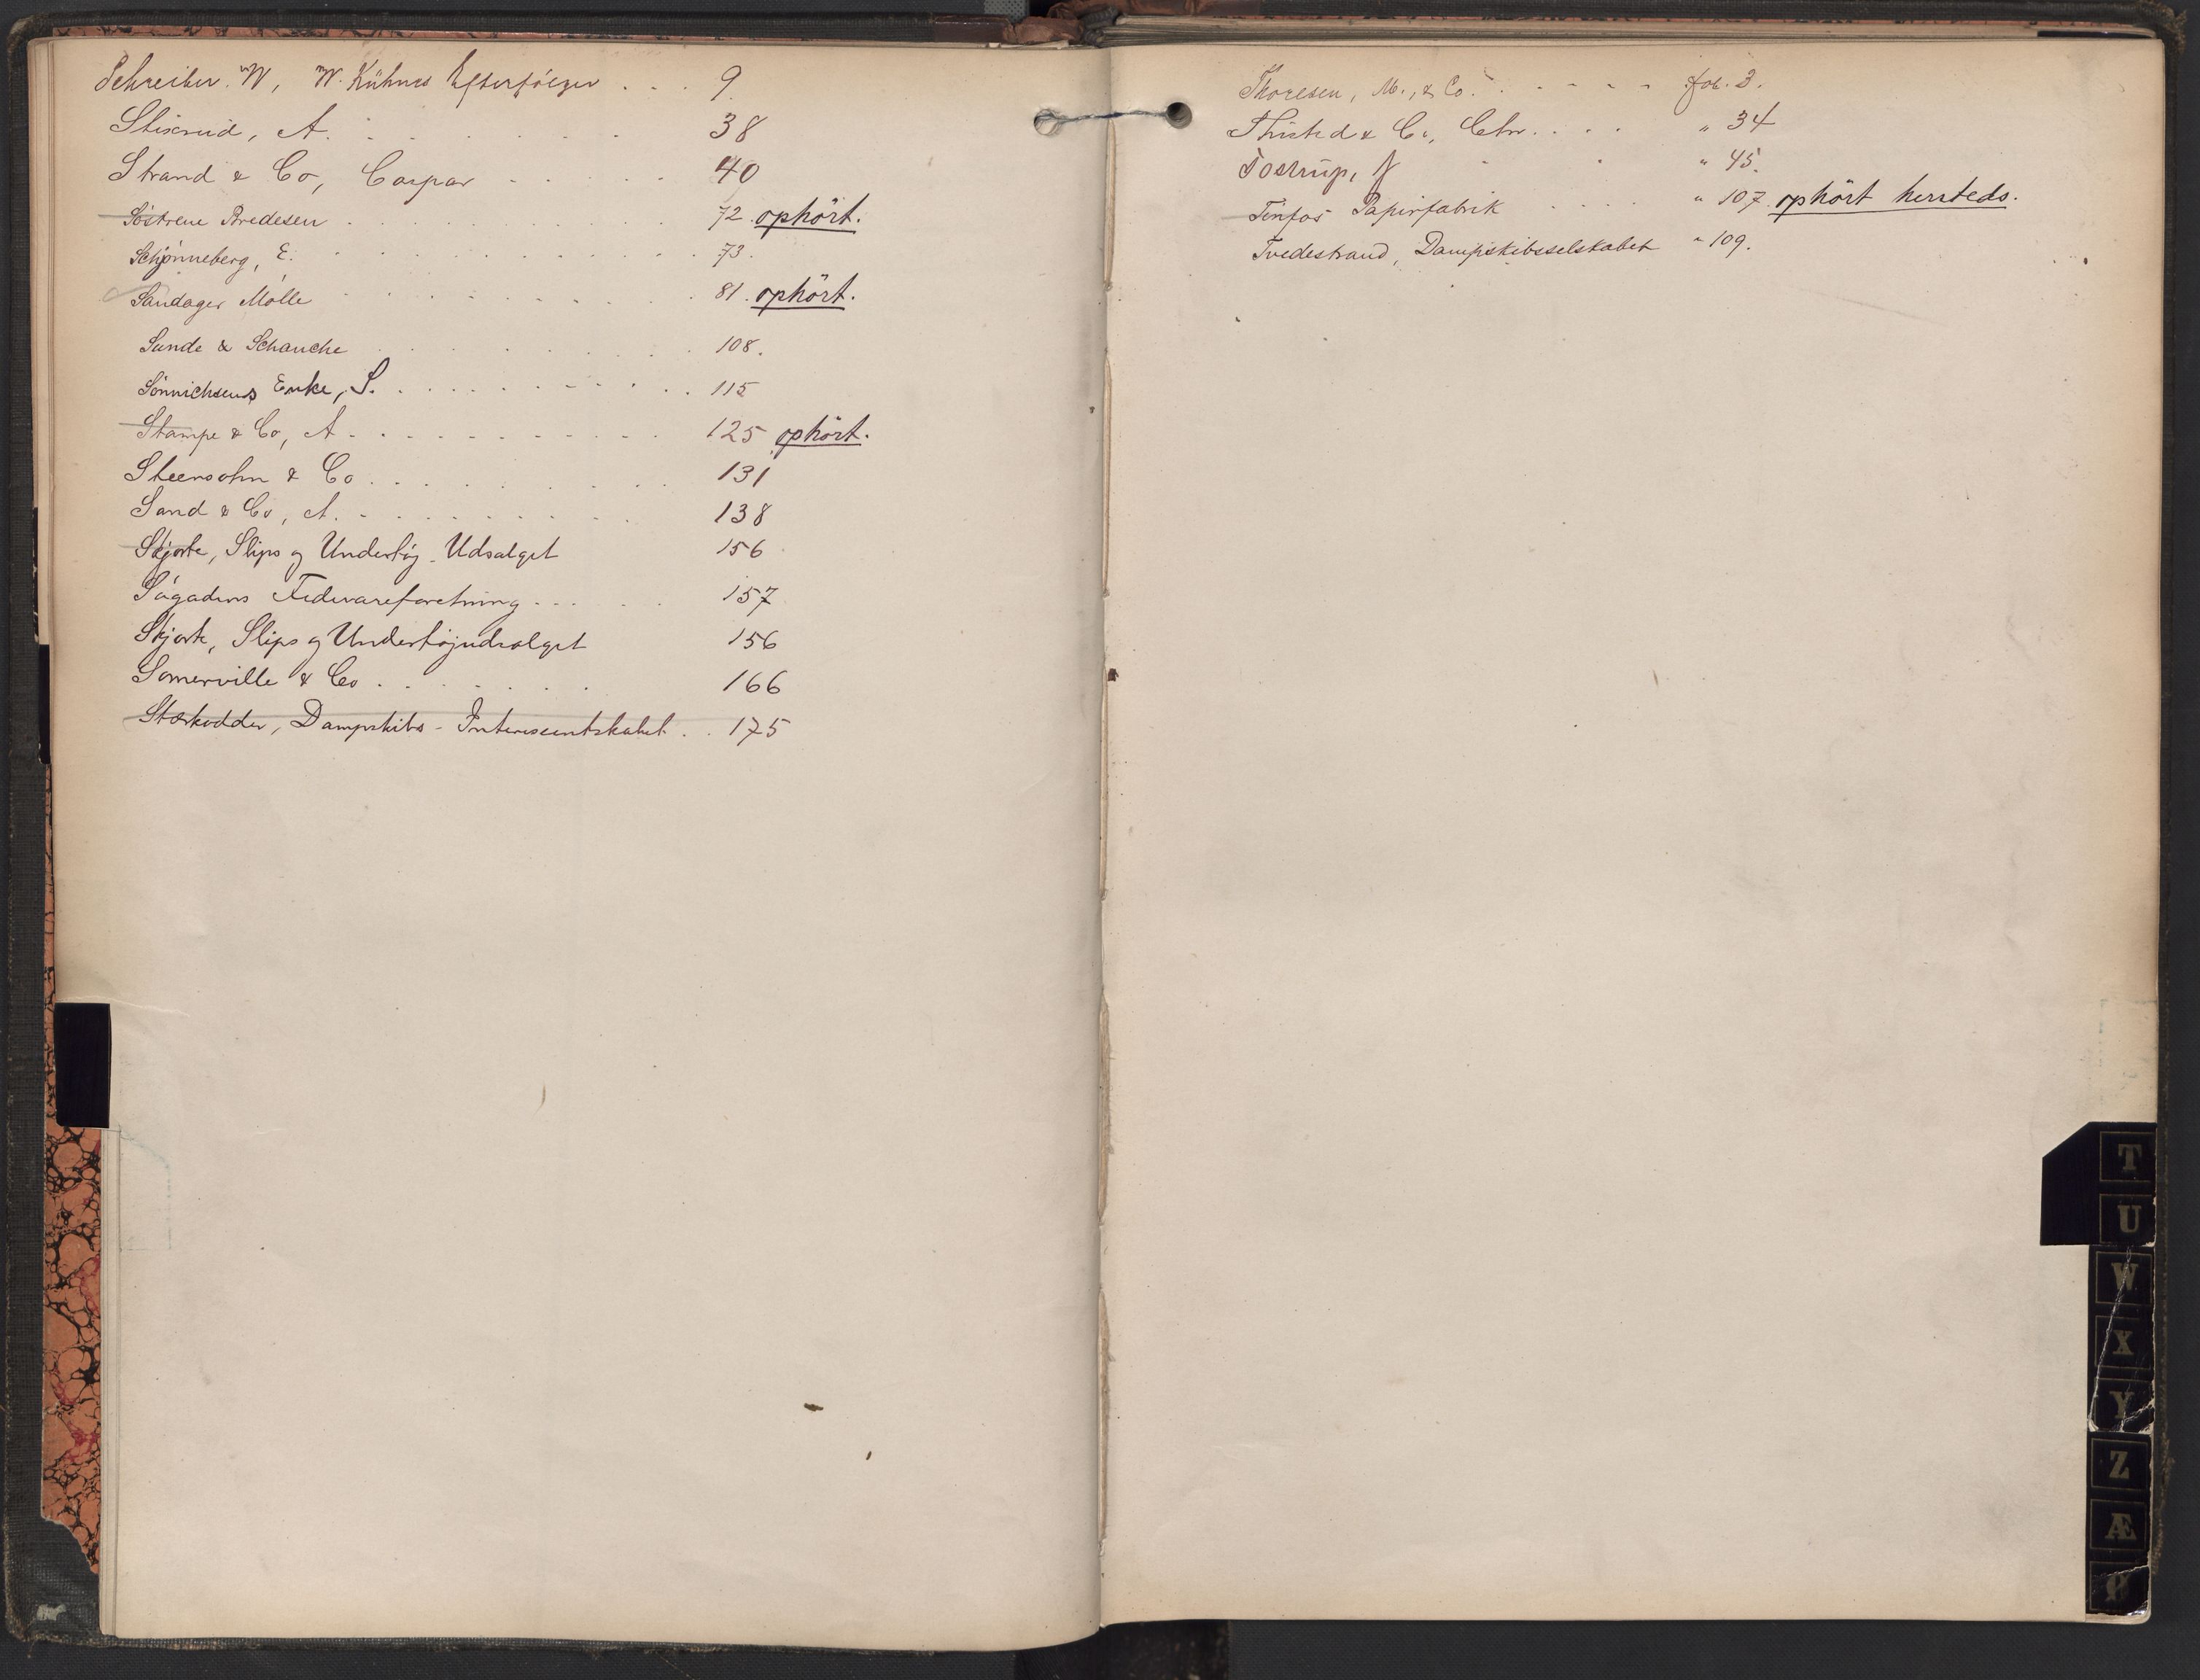 Schreiber. W, W. Kühnes Efterfölger . . . 9.
Stixrud, A. . . . . . . 38
Strand & Co, Caspar . . . . . 40
Söstrene Bredesen . . . . . . . . 72. ophört.
Schjönneberg, E. . . . . . . . . . 73.
Sandager Mölle . . . . . . . . . 81. ophört.
Sunde & Schanche . . . . . . . . 108.
Sönnichsens Enke, S. . . . . . . . . . 115
Stampe & Co, A . . . . . . . . . . 125 ophört.
Steensohn & Co . . . . . . . . 131
Sand & Co, A. . . . . . . . . 138
Skjorte, Slips og Undertöj-Udsalget 156
Sögadens Fedevareforetning . . . . . 157
Skjorte, Slips og Undertöjudsalget 156
Somerville & Co . . . . . . . 166
Stærkodder, Dampskibs-Interessentskabet . . 175
Thoresen, M., & Co. . . . . . . fol. 3.
Thisted & Co, Chr. . . . . " 34
Tostrup, J . . " 45.
Tinfos Papirfabrik . . . . " 107. ophört hersteds.
Tvedestrand, Dampskibsselskabet " 109.
T
U
W
X
Y
Z
Æ
Ø